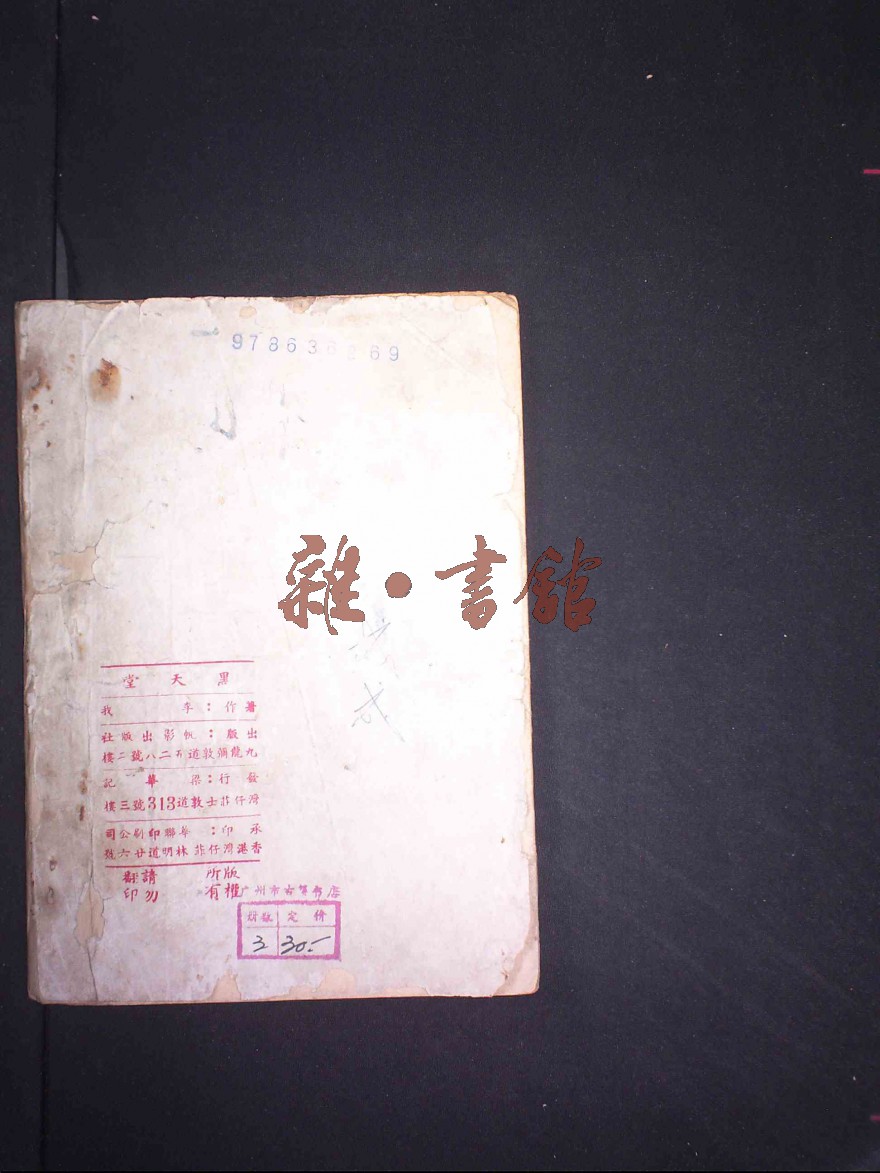 雜·書館
黑天堂
著作：李我
出版：帆影出版社
九龍彌敦道五二八號二樓
發行：梁華記
灣仔莊士敦道313號三樓
承印：華聯印刷公司
香港灣仔菲林明道廿六號
版權所有
請勿翻印
广州市古籍书店
册数 定价
3 30.-